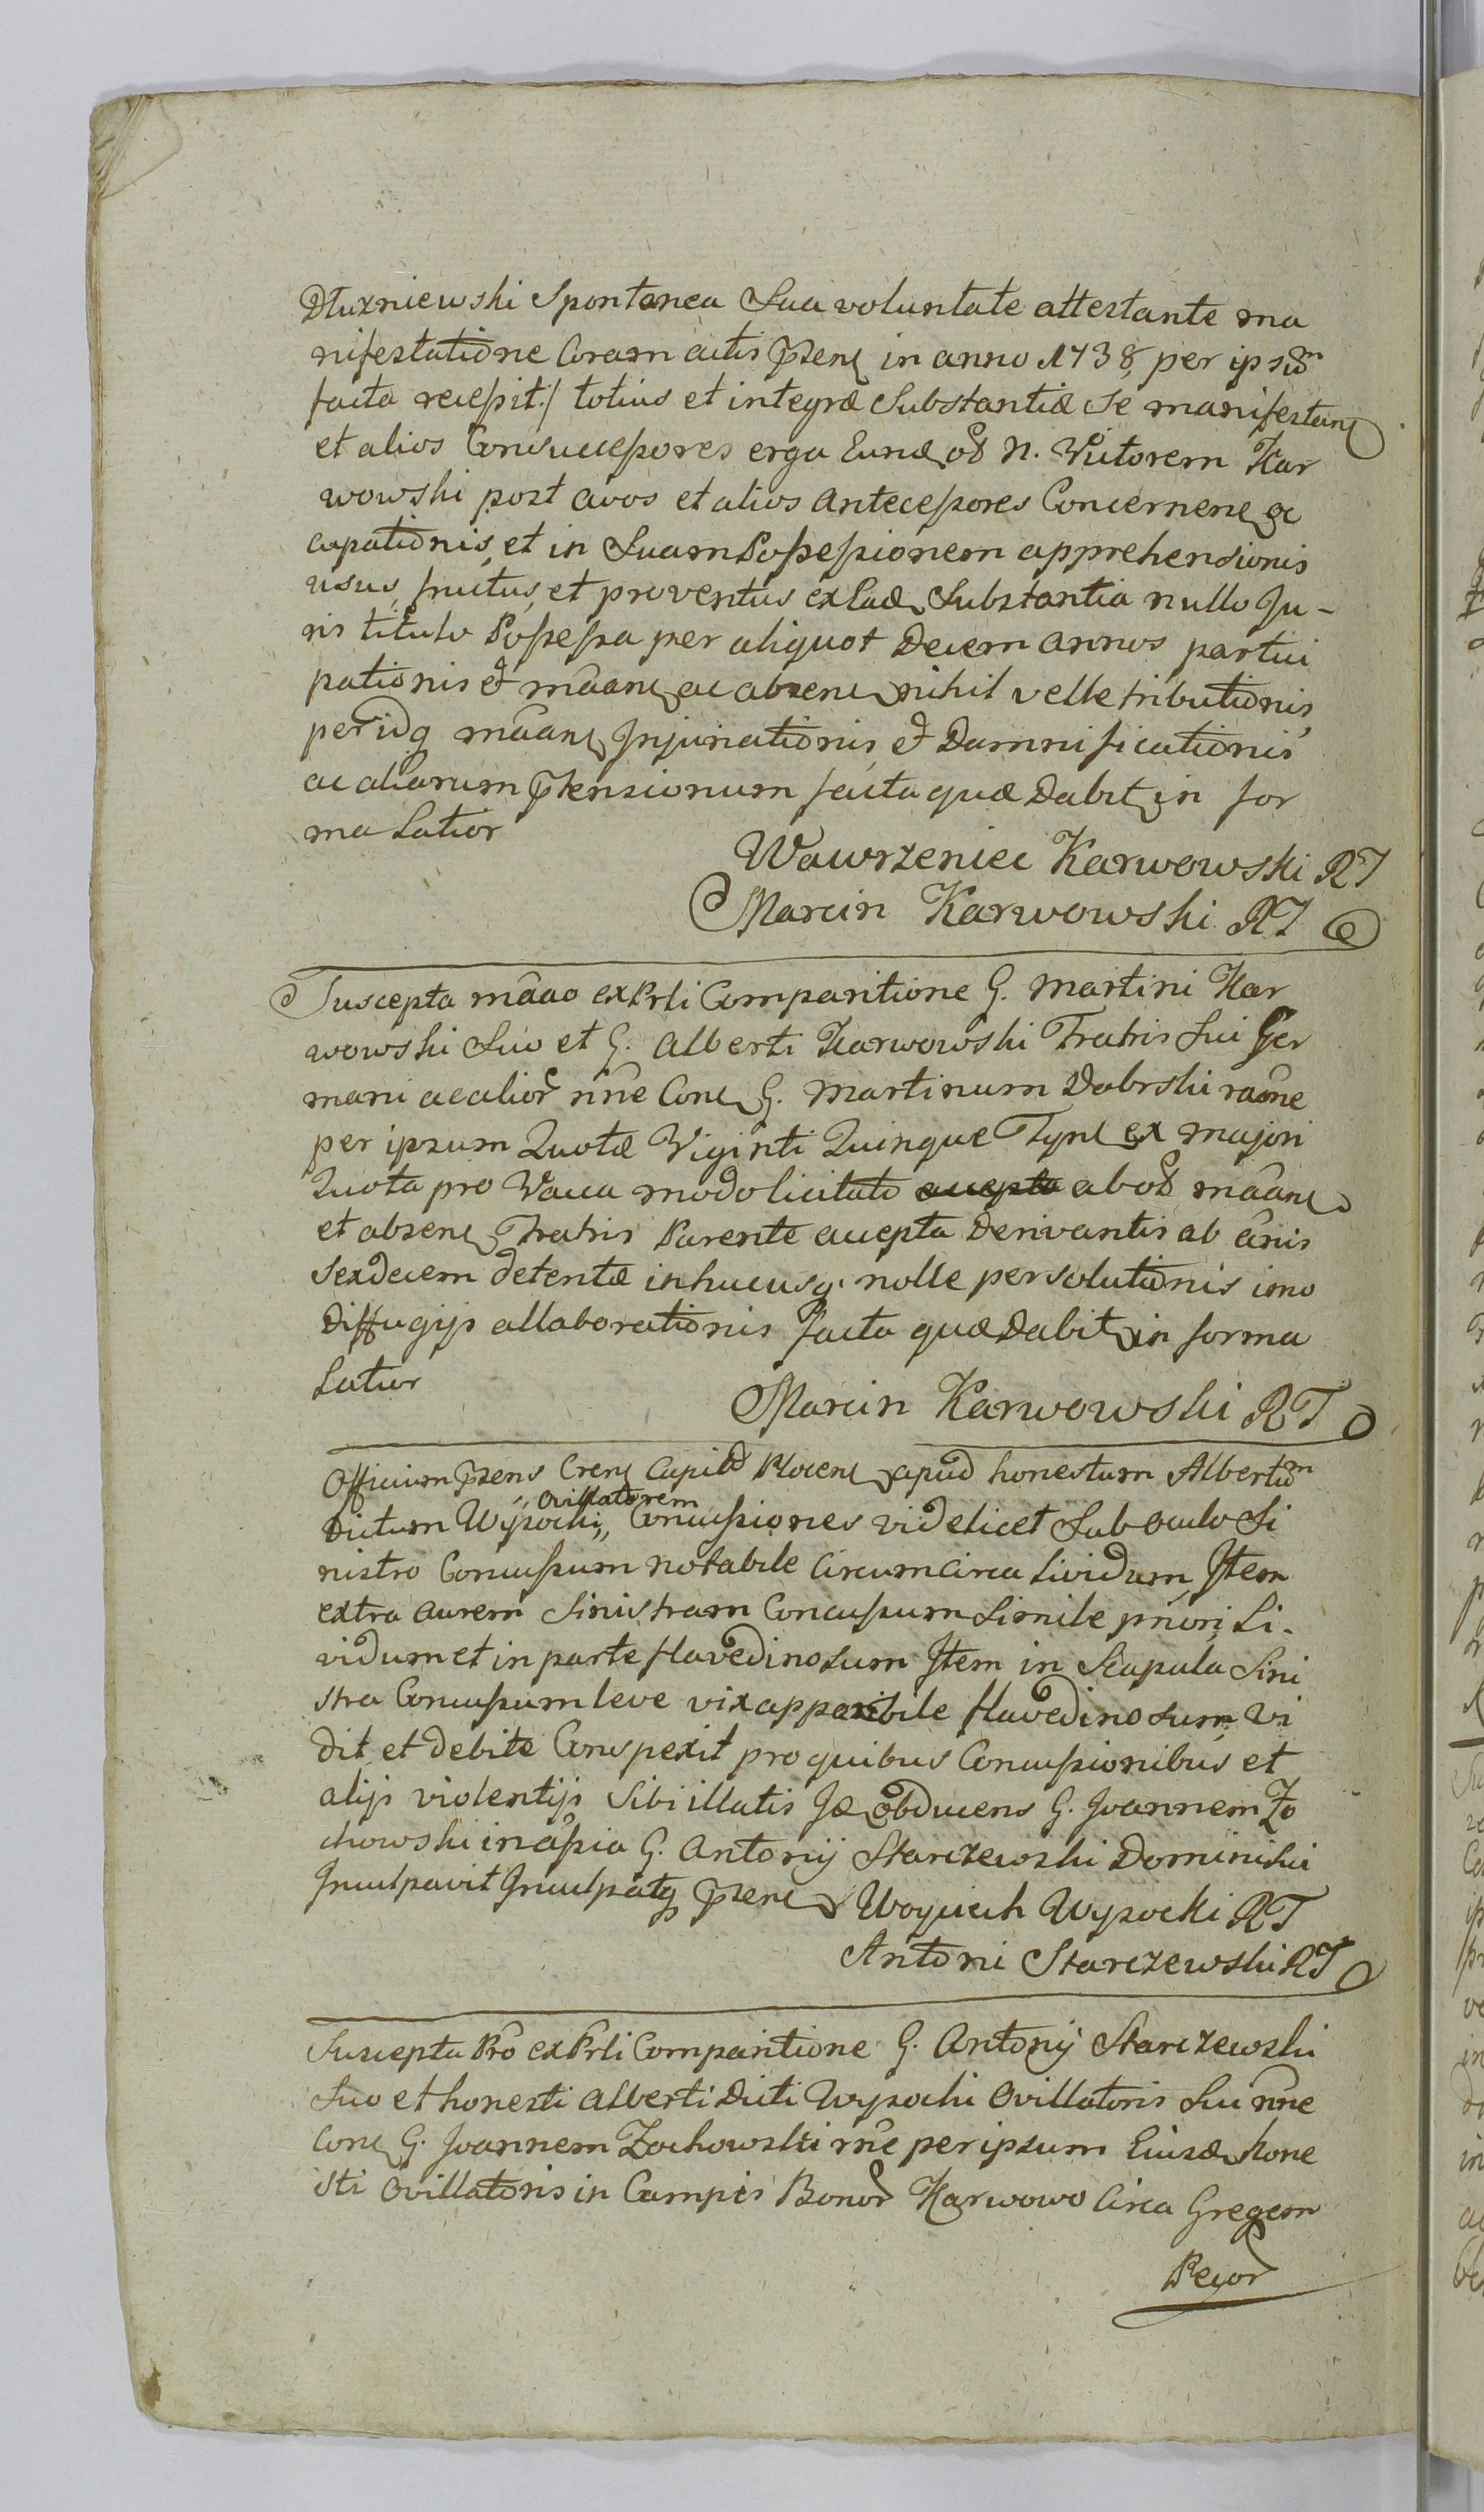 Dłuxniewski Spontanea Sua voluntate attestante ma
nifestatione Coram actis pñsen in anno 1738 per ipsum
facta recessit./ totius et integræ Substantiæ se manifestan
et alios Consuccessores erga Eund od N. Victorem Kar
wowski post avos et alios antecessores Concernen oc
cupationis, et in Suam Possessionem apprehensionis
usus, fructus, et proventus ex Ead Substantia nullo Ju-
ris titulo Possessa per aliquot Decem annos partici
pationis et mãan ac absen nihil velle tributionis
per idq mãan Injuriationis, et Damnificationis
ac aliarum ptensionum facta quæ Dabit in for
ma Latior
Wawrzeniec Karwowski RT
Marcin Karwowski RT
Suscepta mãao ex Prli Comparitione G. Martini Kar
wowski Suo et G. Alberti Karwowski Fratris Sui Ger
mani ac alior nñe Con G. Martinum Dobrski raõne
per ipsum Quotæ Viginti Quinque Tynf ex majori
Quota pro Vacca modo licitato accepta ab od mãan
et absen Fratris Parente accepta Derivantis ab annis
Sexdecem detentæ inhucusq. nolle persolutionis imo
Diffugijs allaborationis facta quæ Dabit in forma
Latior
Marcin Karwowski RT
Officium pñsens Cren Capit Plocen apud honestum Albertum
Dictum Wysocki Ovillatorem Concussiones videlicet Sub oculo Si
nistro Concussum notabile Circumcirca lividum, Item
extra aurem Sinistram Concussum Simile priori Li-
vidum et in parte flavedinosum Item in Scapula Sini
stra Concussum leve vix apparibile flavedinosum vi
dit et debite Conspexit pro quibus Concussionibus et
alijs violentijs Sibi illatis Id obducens G. Joannem Zo
chowski in assia G. Antonij Starczewski Dominisui
Inculpavit Inculpatq pñsen Woyciech Wysocki RT
Antoni Starczewski RT
Suscepta Pro ex Prli Comparitione G. Antonij Starczewski
Suo et honesti Alberti Dicti Wysocki Ovillatoris Sui nñe
Con G. Joannem Zochowski rñe per ipsum Eiusd hone
sti Ovillatoris in Campis Bonor Karwowo Circa Gregem
Pecor